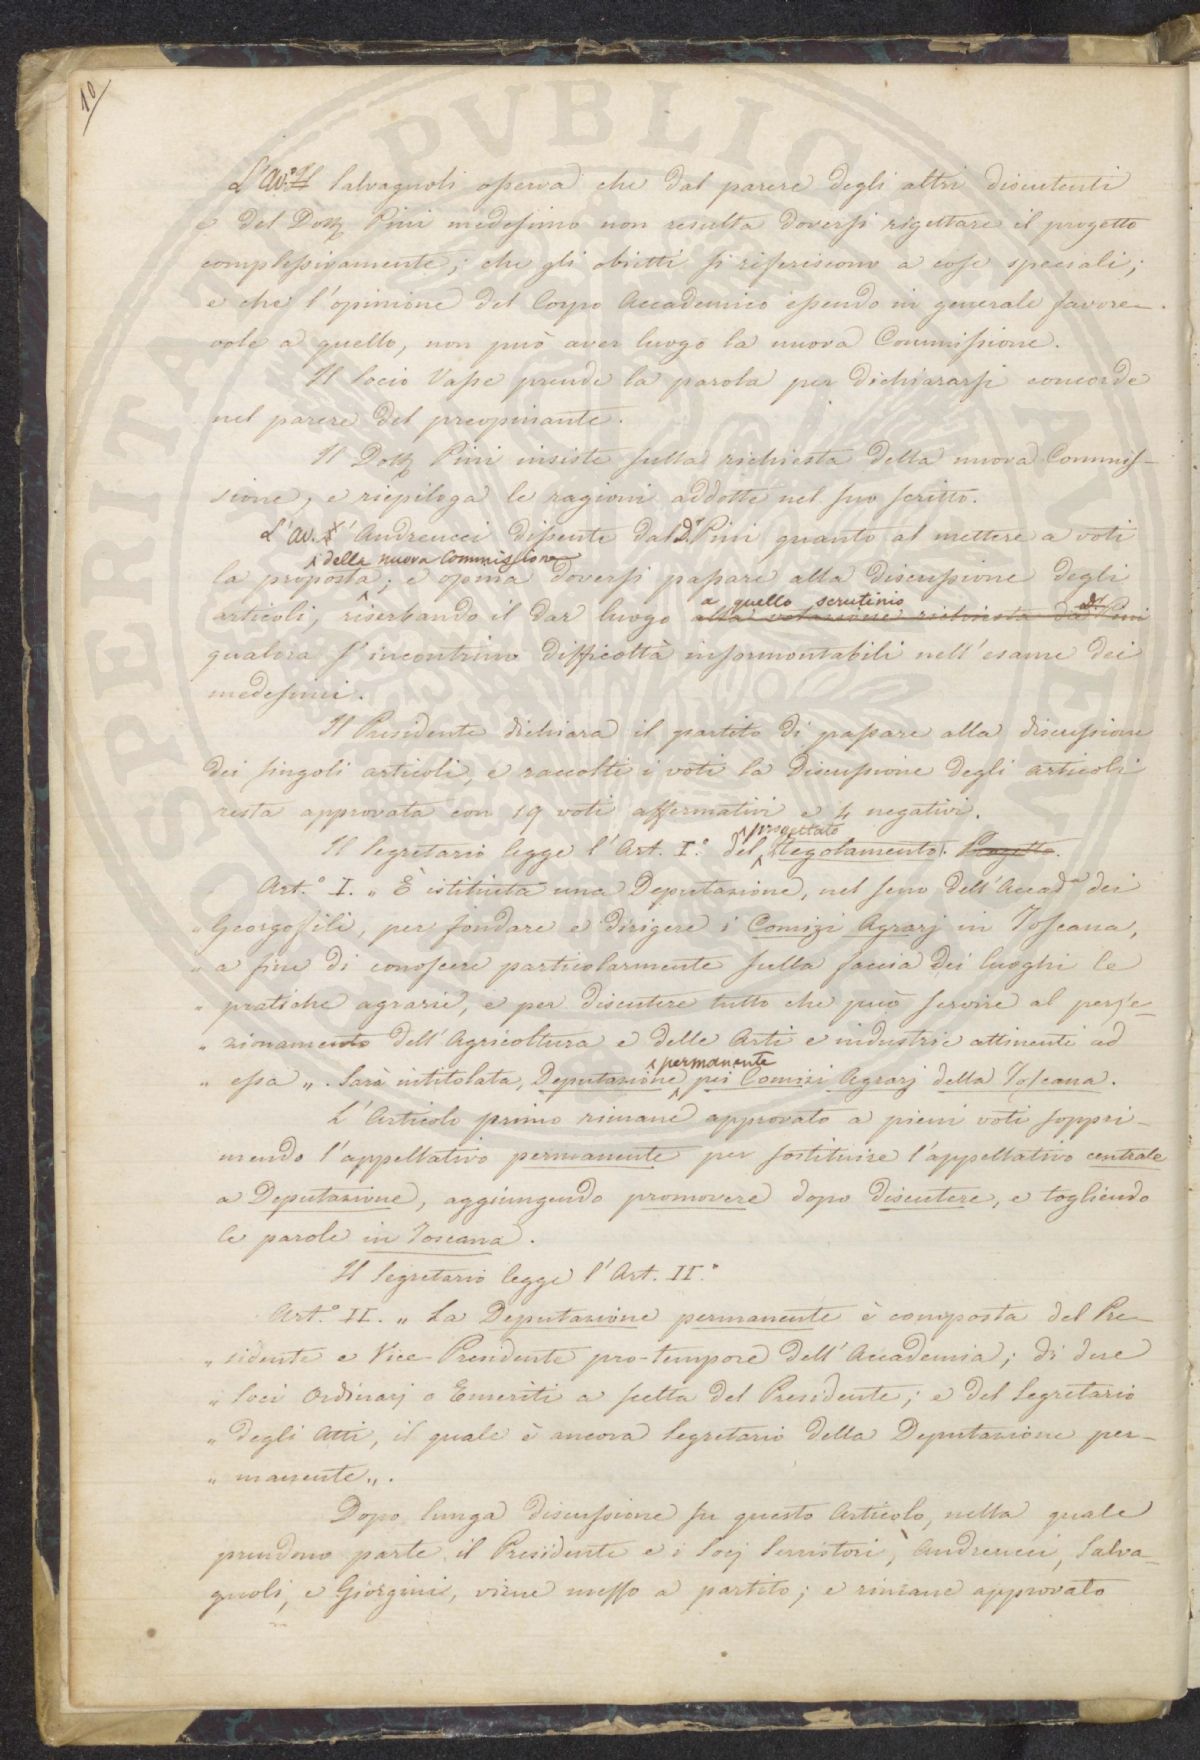 10
L'Av.º Salvagnoli osserva che dal parere degli altri discutenti
e del Dott. Pini medesimo non resulta doversi rigettare il progetto
complessivamente; che gli obietti si riferiscono a cose speciali;
e che l'opinione del Corpo Accademico essendo in generale favore-
vole a quello, non può aver luogo la nuova Commissione.
Il Socio Vasse prende la parola per dichiararsi concorde
nel parere del preopinante.
Il Dott. Pini insiste sulla richiesta della nuova Commis-
sione, e riepiloga le ragioni addotte nel suo scritto.
L'Av. Andreucci dissente dal D.r Pini quanto al mettere a voti
della nuova Commissione
la proposta; e opina doversi passare alla discussione degli
a quello scrutinio
articoli, riserbando il dar luogo alla votazione richiesta da Pini
qualora s'incontrino difficoltà insormontabili nell'esame dei
medesimi.
Il Presidente dichiara il partito di passare alla discussione
dei singoli articoli, e raccolti i voti la discussione degli articoli
resta approvata con 19 voti affermativi e 4 negativi.
progettato
Il Segretario legge l'Art. I.º del Regolamento. Progetto.
Art.º I. „ È istituita una Deputazione, nel seno dell'Accad.a dei
„ Georgofili, per fondare e dirigere i Comizi Agrarj in Toscana,
„ a fine di conoscere particolarmente sulla faccia dei luoghi le
„ pratiche agrarie, e per discutere tutto che può servire al perfe-
„ zionamento dell'Agricoltura e delle Arti e industrie attinenti ad
permanente
„ essa „. Sarà intitolata, Deputazione pei Comizi Agrarj della Toscana.
L'Articolo primo rimane approvato a pieni voti soppri-
mendo l'appellativo permanente per sostituire l'appellativo centrale
a Deputazione, aggiungendo promovere dopo discutere, e togliendo
le parole in Toscana.
Il Segretario legge l'Art. II.º
Art.º II. „ La Deputazione permanente è composta del Pre-
„ sidente e Vice-Presidente pro-tempore dell'Accademia; di due
„ Soci Ordinarj o Emeriti a scelta del Presidente; e del Segretario
„ degli Atti, il quale è ancora Segretario della Deputazione per-
„ manente „.
Dopo lunga discussione su questo Articolo, nella quale
prendono parte il Presidente e i Socj Serristori, Andreucci, Salva-
gnoli, e Giorgini, viene messo a partito; e rimane approvato